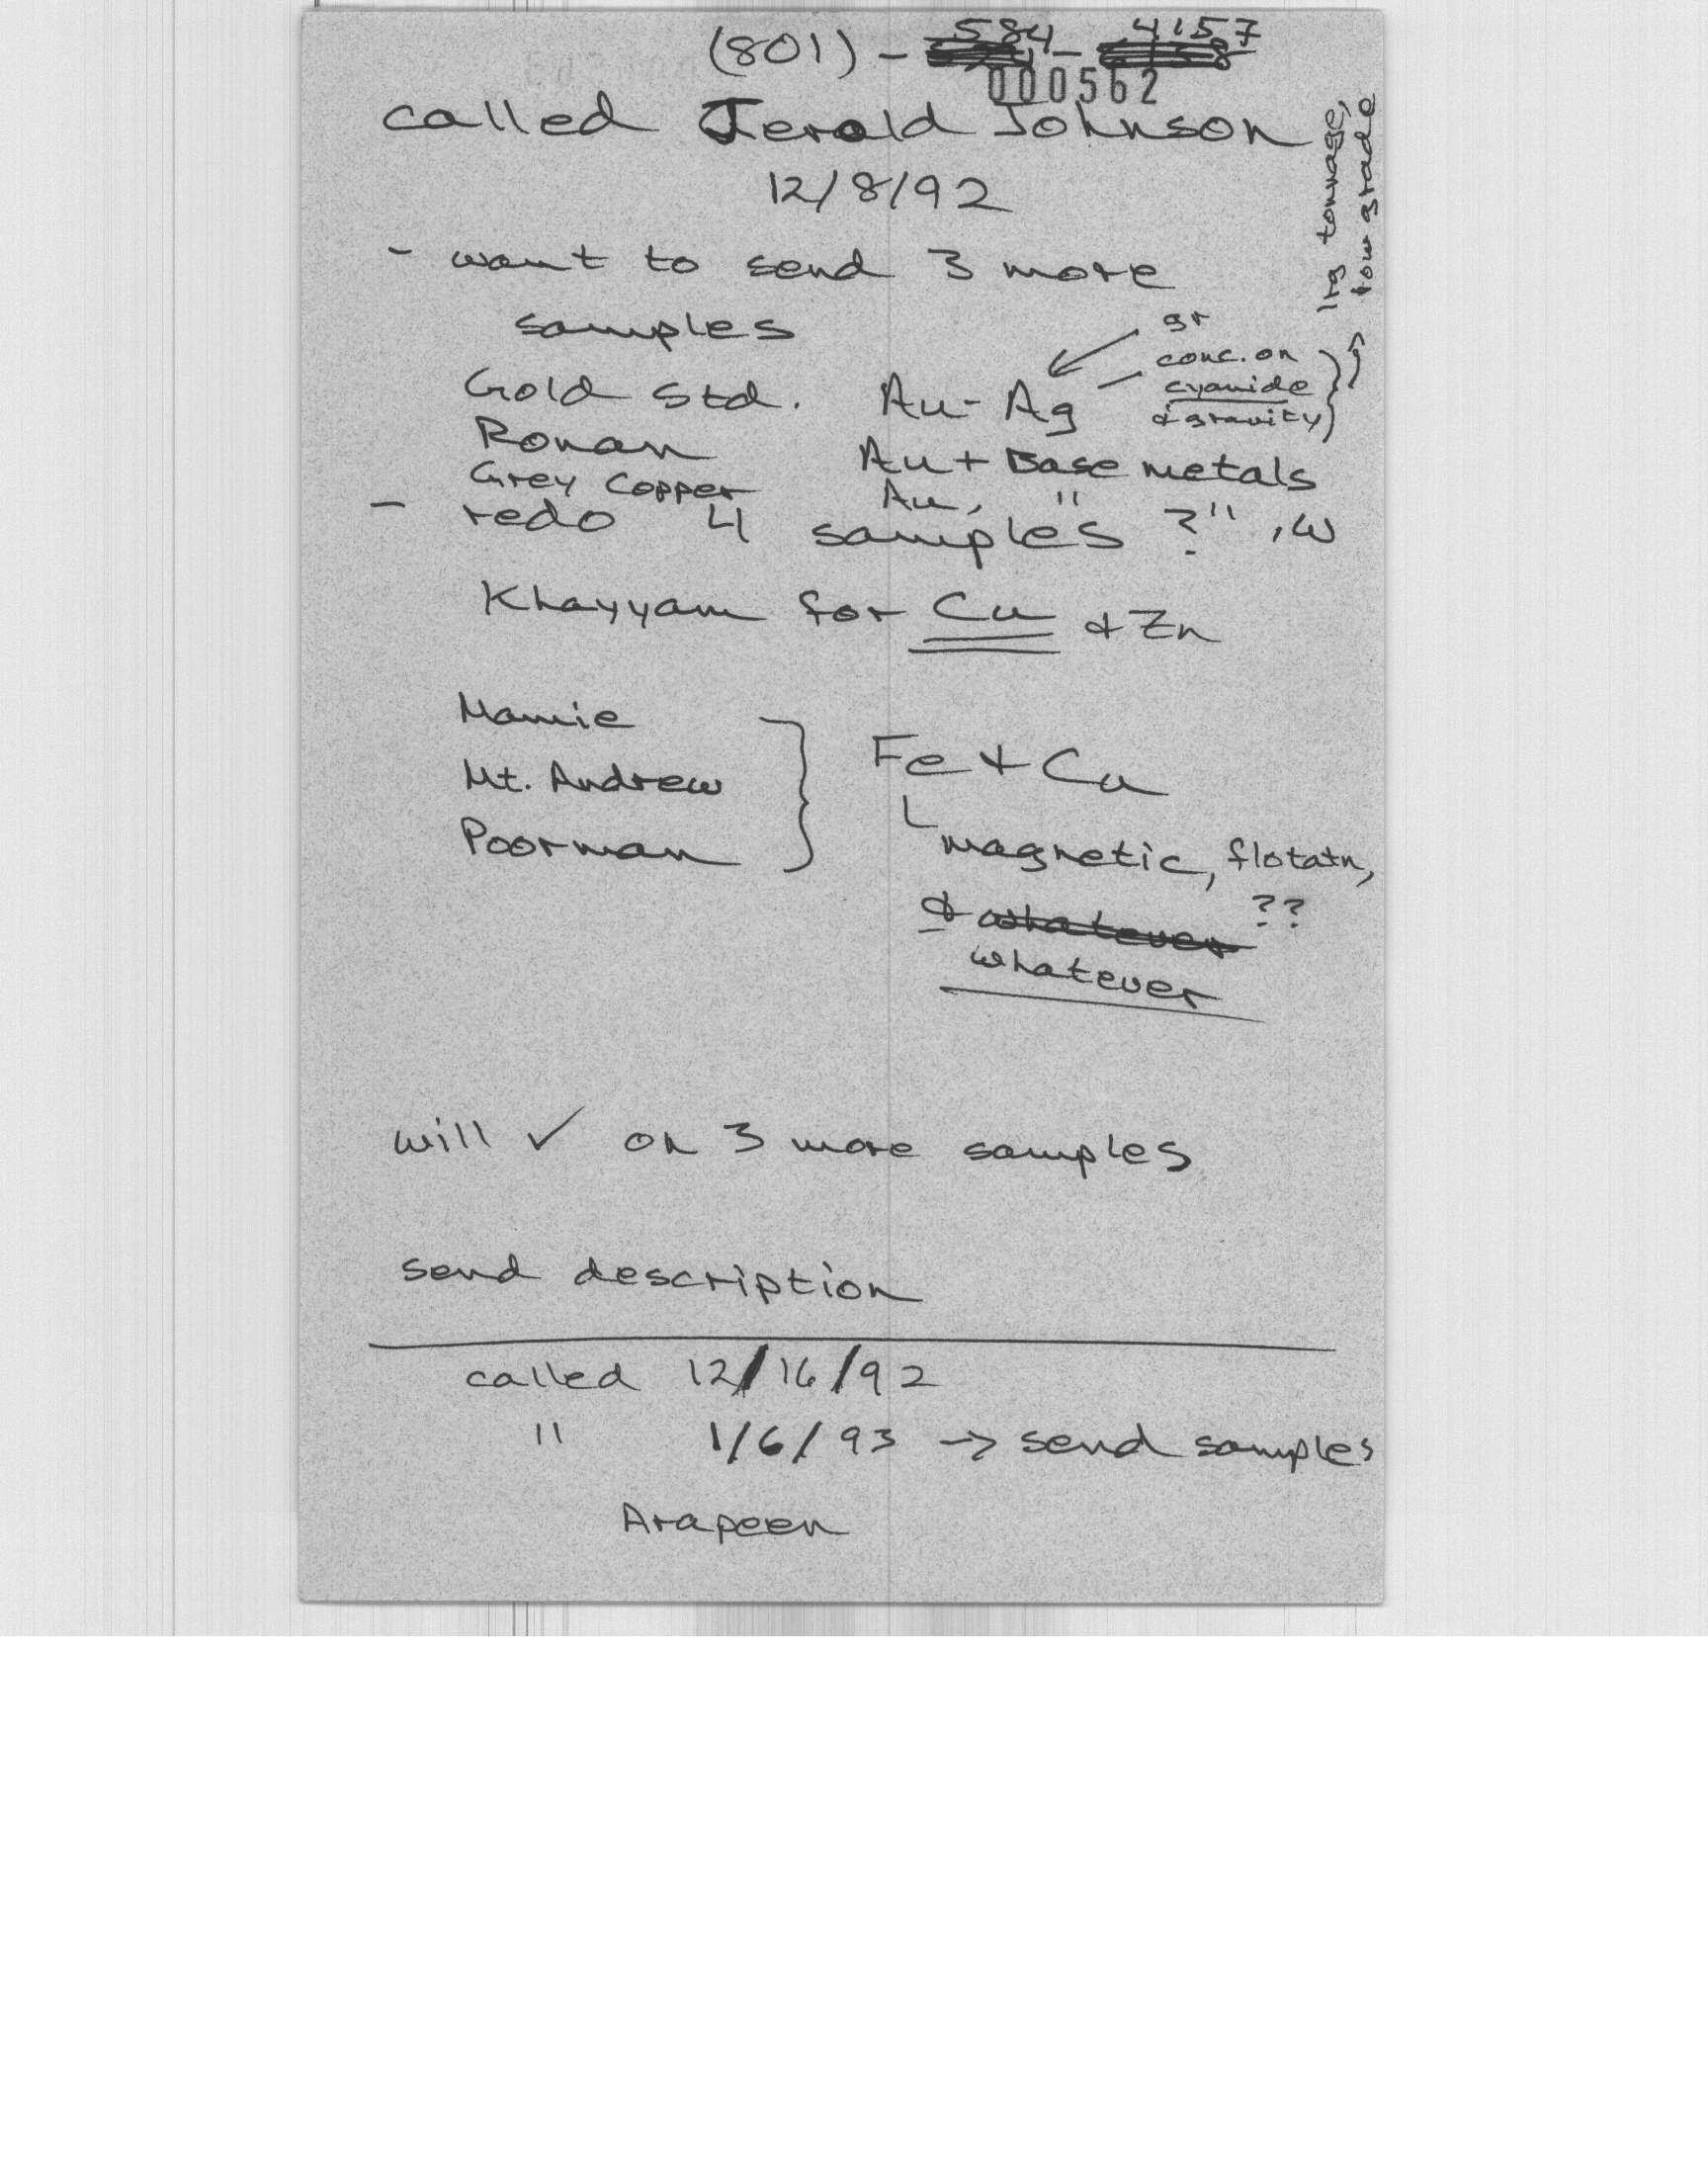 (801) - 584 - 4157
000562
called Jerold Johnson
12/8/92
lrg tonnage,
low grade
- want to send 3 more
samples
gr
conc. on
cyanide
& gravity
Gold Std. Au-Ag
Ronan Au + Base metals
Grey Copper Au, " " , W
- redo 4 samples ?
Khayyam for Cu & Zn
Mamie
Mt. Andrew
Poorman
Fe & Cu
magnetic, flotatn,
& whatever ??
whatever
will ✓ on 3 more samples
send description
called 12/16/92
" 1/6/93 → send samples
Arapeen